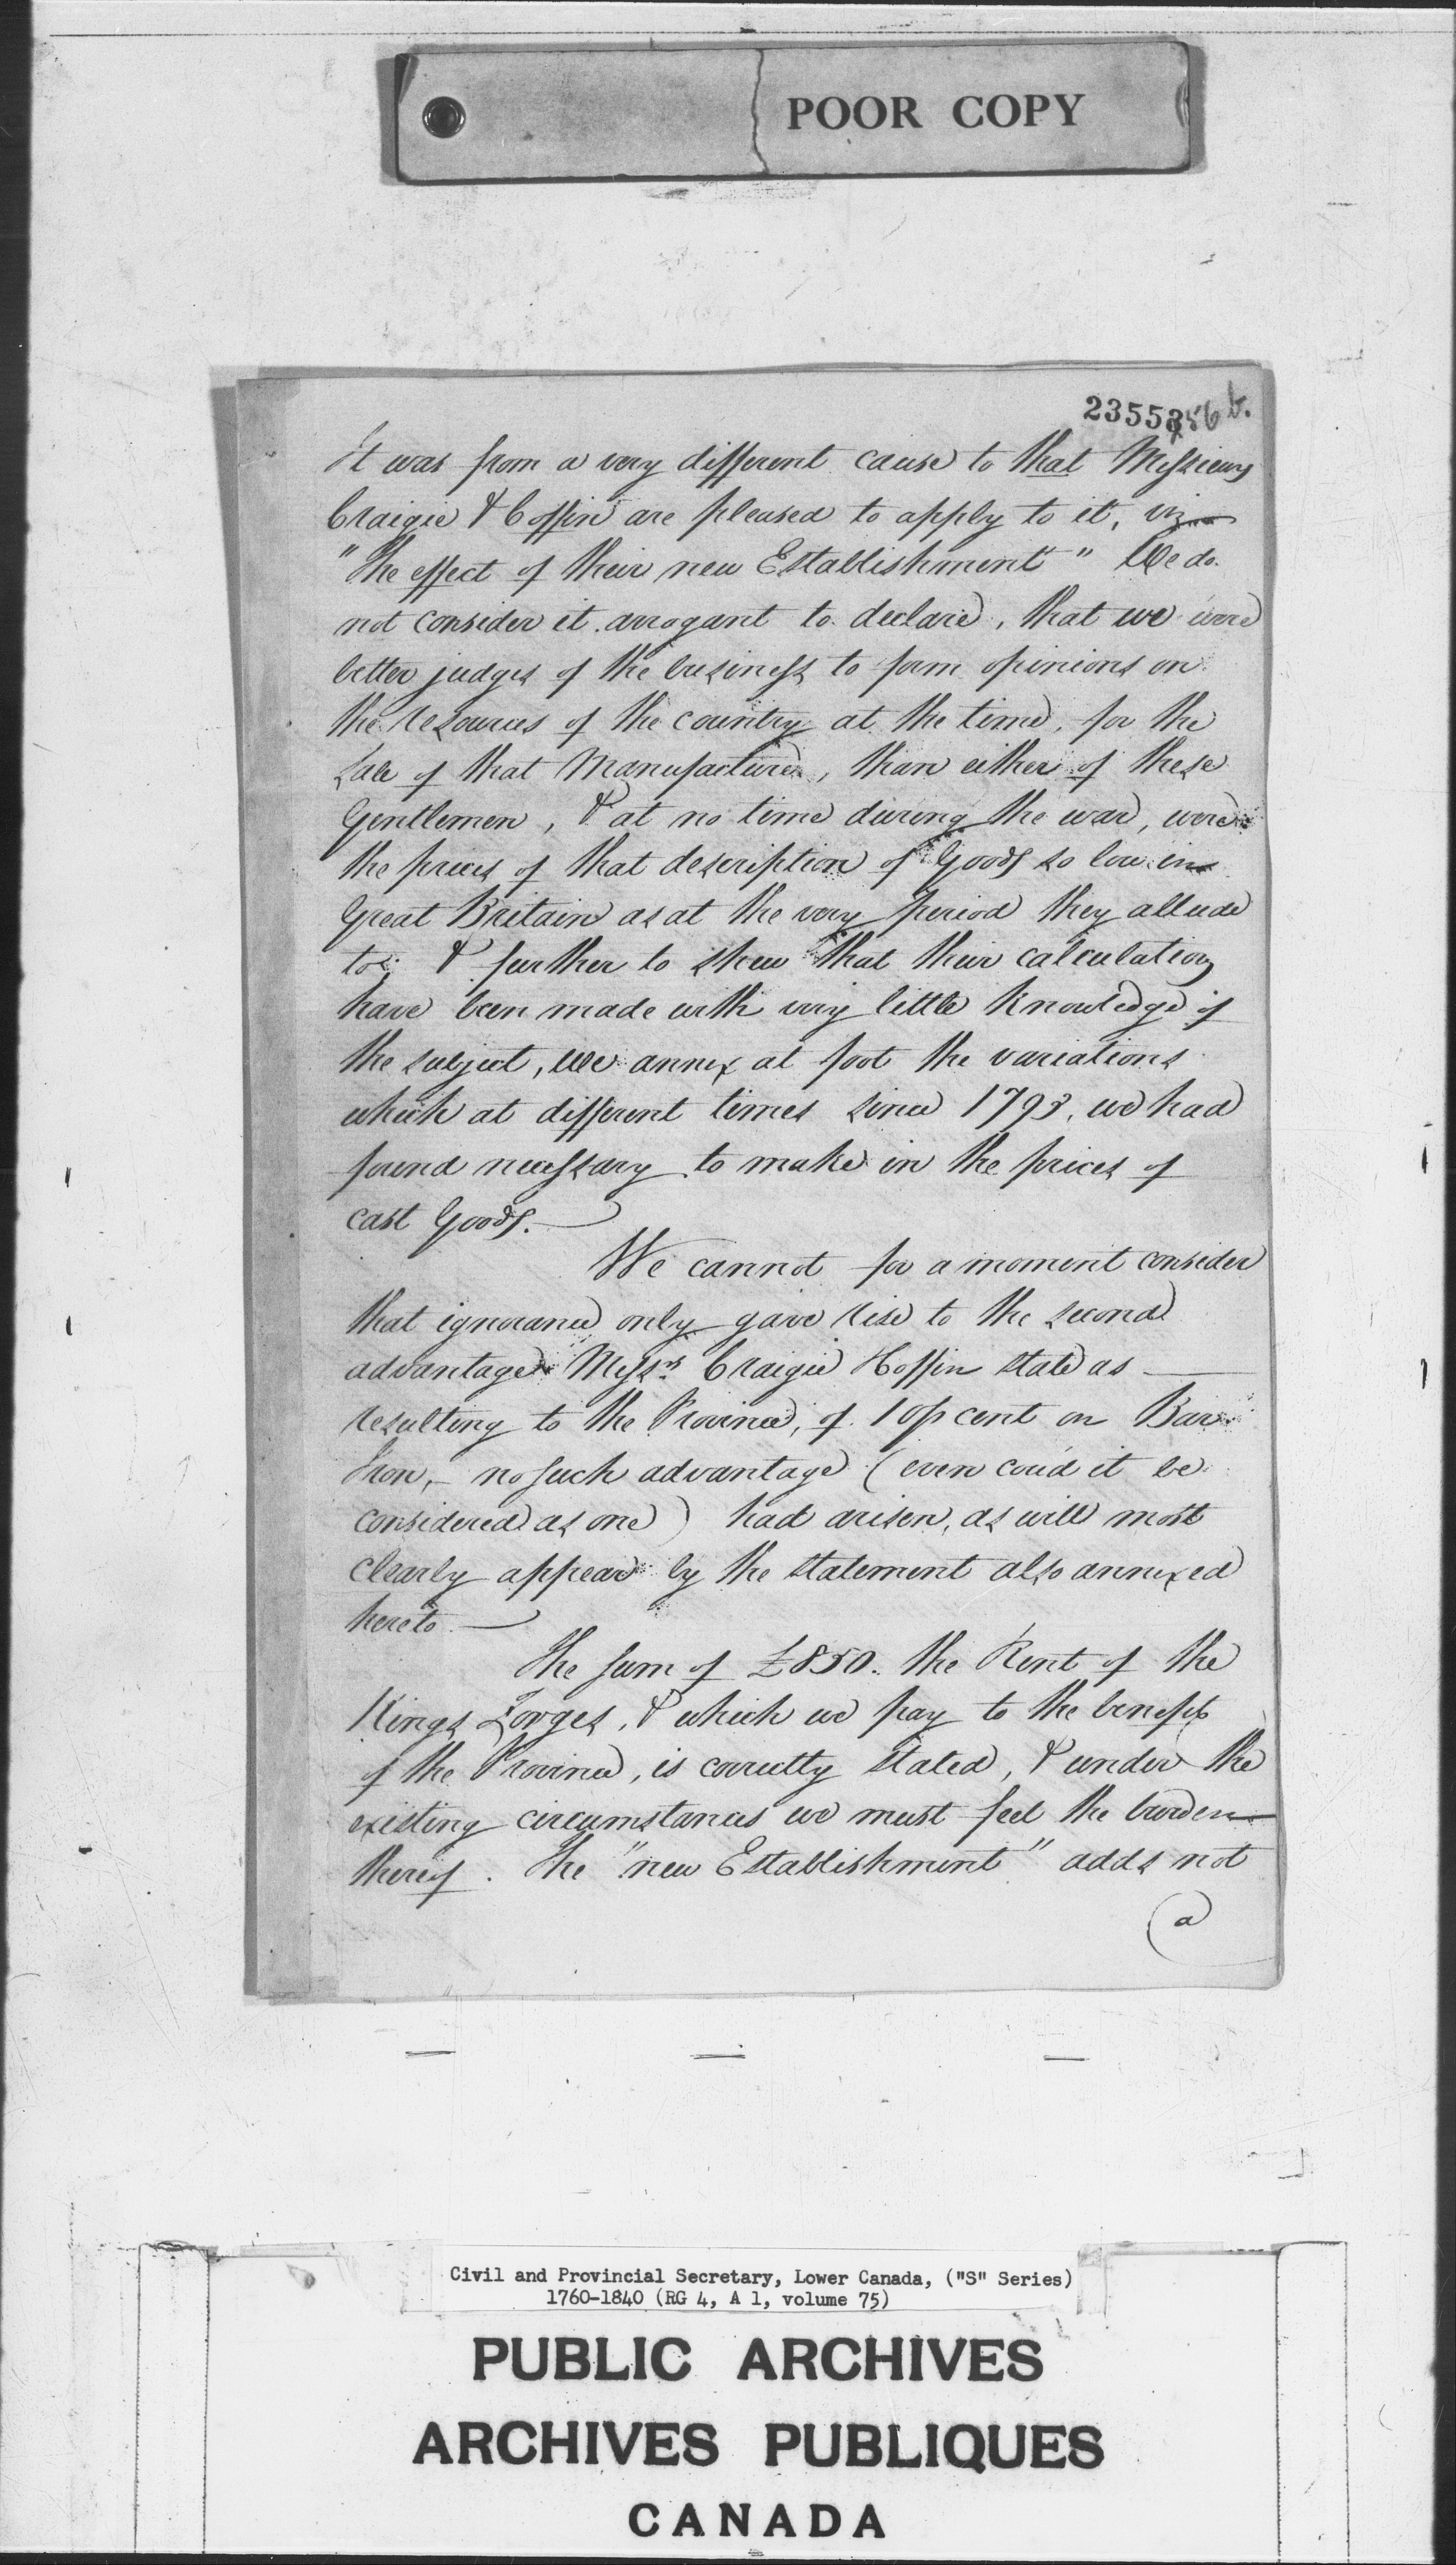 POOR COPY
23553 56 b.
It was from a very different cause to that Messieurs
Craigie & Coffin are pleased to apply to it, viz
"The effect of their new Establishment" We do
not consider it arrogant to declare, that we were
better judges of the business to form opinions on
the resources of the country at the time, for the
Sale of that Manufacture, than either of these
Gentlemen, & at no time during the war, were
the prices of that description of Goods so low in
Great Britain as at the very period they allude
to; & further to shew that their calculations
have been made with very little knowledge of
the subject, we annex at foot the variations
which at different times since 1793, we had
found necessary to make in the prices of
cast Goods.
We cannot for a moment consider
that ignorance only gave rise to the second
advantage Messrs Craigie & Coffin state as
resulting to the Province, of 10 p cent on Bar
Iron, - no such advantage (even cou'd it be
considered as one) had arisen, as will most
clearly appear by the statement also annexed
hereto.
The Sum of £850. the Rent of the
Kings Forges, & which we pay to the benefit
of the Province, is correctly stated, & under the
existing circumstances we must feel the burden
thereof. The "new Establishment" adds not
a
Civil and Provincial Secretary, Lower Canada, ("S" Series)
1760-1840 (RG 4, A 1, volume 75)
PUBLIC ARCHIVES
ARCHIVES PUBLIQUES
CANADA